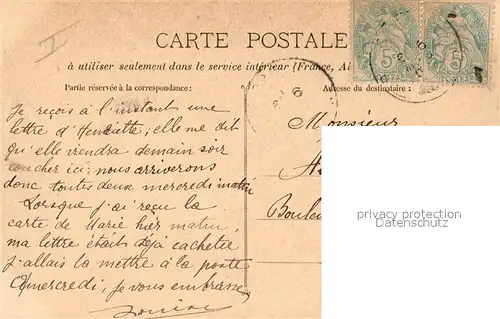 I
CARTE POSTALE
à utiliser seulement dans le service intérieur (France, Al
Partie réservée à la correspondance:
Adresse du destinataire:
Je reçois à l'instant une
lettre d'Henriette; elle me dit
qu'elle viendra demain soir
coucher ici; nous arriverons
donc toutes deux mercredi matin
Lorsque j'ai reçu la
carte de Marie hier matin,
ma lettre était déjà cachetée
j'allais la mettre à la poste
A mercredi, je vous embrasse
Louise
Monsieur
Boule
privacy protection
Datenschutz